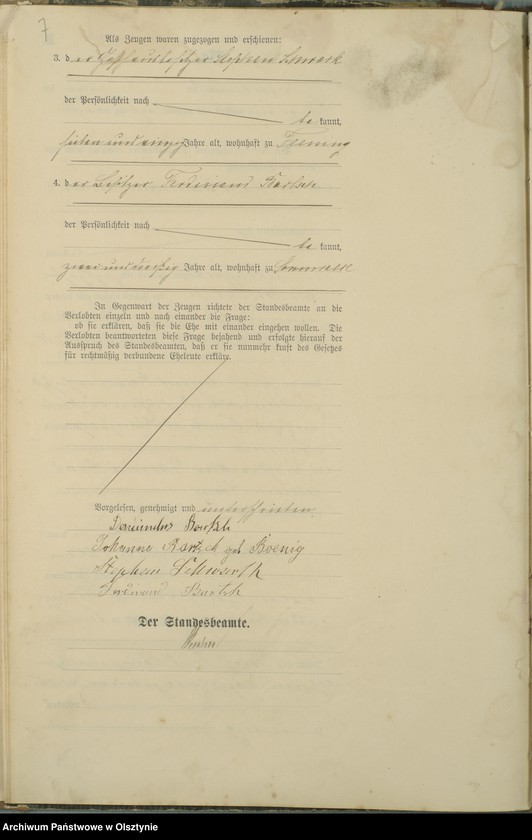 7
Als Zeugen waren zugezogen und erschienen:
3. der Stephan
der Persönlichkeit nach
be kannt,
sieben und Jahre alt, wohnhaft zu
4. der Besitzer Ferdinand Bartsch
der Persönlichkeit nach
be kannt,
zwei und Jahre alt, wohnhaft zu
In Gegenwart der Zeugen richtete der Standesbeamte an die
Verlobten einzeln und nach einander die Frage:
ob sie erklären, daß sie die Ehe mit einander eingehen wollen. Die
Verlobten beantworteten diese Frage bejahend und erfolgte hierauf der
Ausspruch des Standesbeamten, daß er sie nunmehr kraft des Gesetzes
für rechtmäßig verbundene Eheleute erkläre.
Vorgelesen, genehmigt und unterschrieben.
Bartsch
Johanna Bartsch geb Koenig
Stephan
Ferdinand Bartsch
Der Standesbeamte.
Archiwum Państwowe w Olsztynie